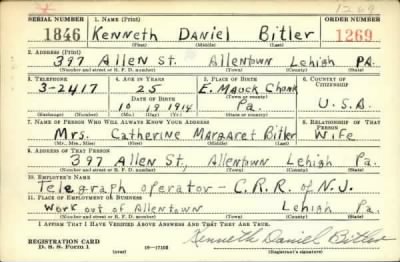 1269
SERIAL NUMBER 1. NAME (Print) ORDER NUMBER
1846 Kenneth Daniel Bitler 1269
(First) (Middle) (Last)
2. ADDRESS (Print)
397 Allen St. Allentown Lehigh PA.
(Number and street or R. F. D. number) (Town) (County) (State)
3. TELEPHONE 4. AGE IN YEARS 5. PLACE OF BIRTH 6. COUNTRY OF CITIZENSHIP
3-2417 25 E. Mauch Chunk
DATE OF BIRTH (Town or county)
10 19 1914 Pa. U.S.A.
(Exchange) (Number) (Mo.) (Day) (Yr.) (State or country)
7. NAME OF PERSON WHO WILL ALWAYS KNOW YOUR ADDRESS 8. RELATIONSHIP OF THAT PERSON
Mrs. Catherine Margaret Bitler Wife
(Mr., Mrs., Miss) (First) (Middle) (Last)
9. ADDRESS OF THAT PERSON
397 Allen St., Allentown Lehigh Pa.
(Number and street or R. F. D. number) (Town) (County) (State)
10. EMPLOYER'S NAME
Telegraph operator - C.R.R. of N.J.
11. PLACE OF EMPLOYMENT OR BUSINESS
Work out of Allentown Lehigh Pa.
(Number and street or R. F. D. number) (Town) (County) (State)
I AFFIRM THAT I HAVE VERIFIED ABOVE ANSWERS AND THAT THEY ARE TRUE.
REGISTRATION CARD
D. S. S. Form 1 (over) 16-17105 Kenneth Daniel Bitler
(Registrant's signature)